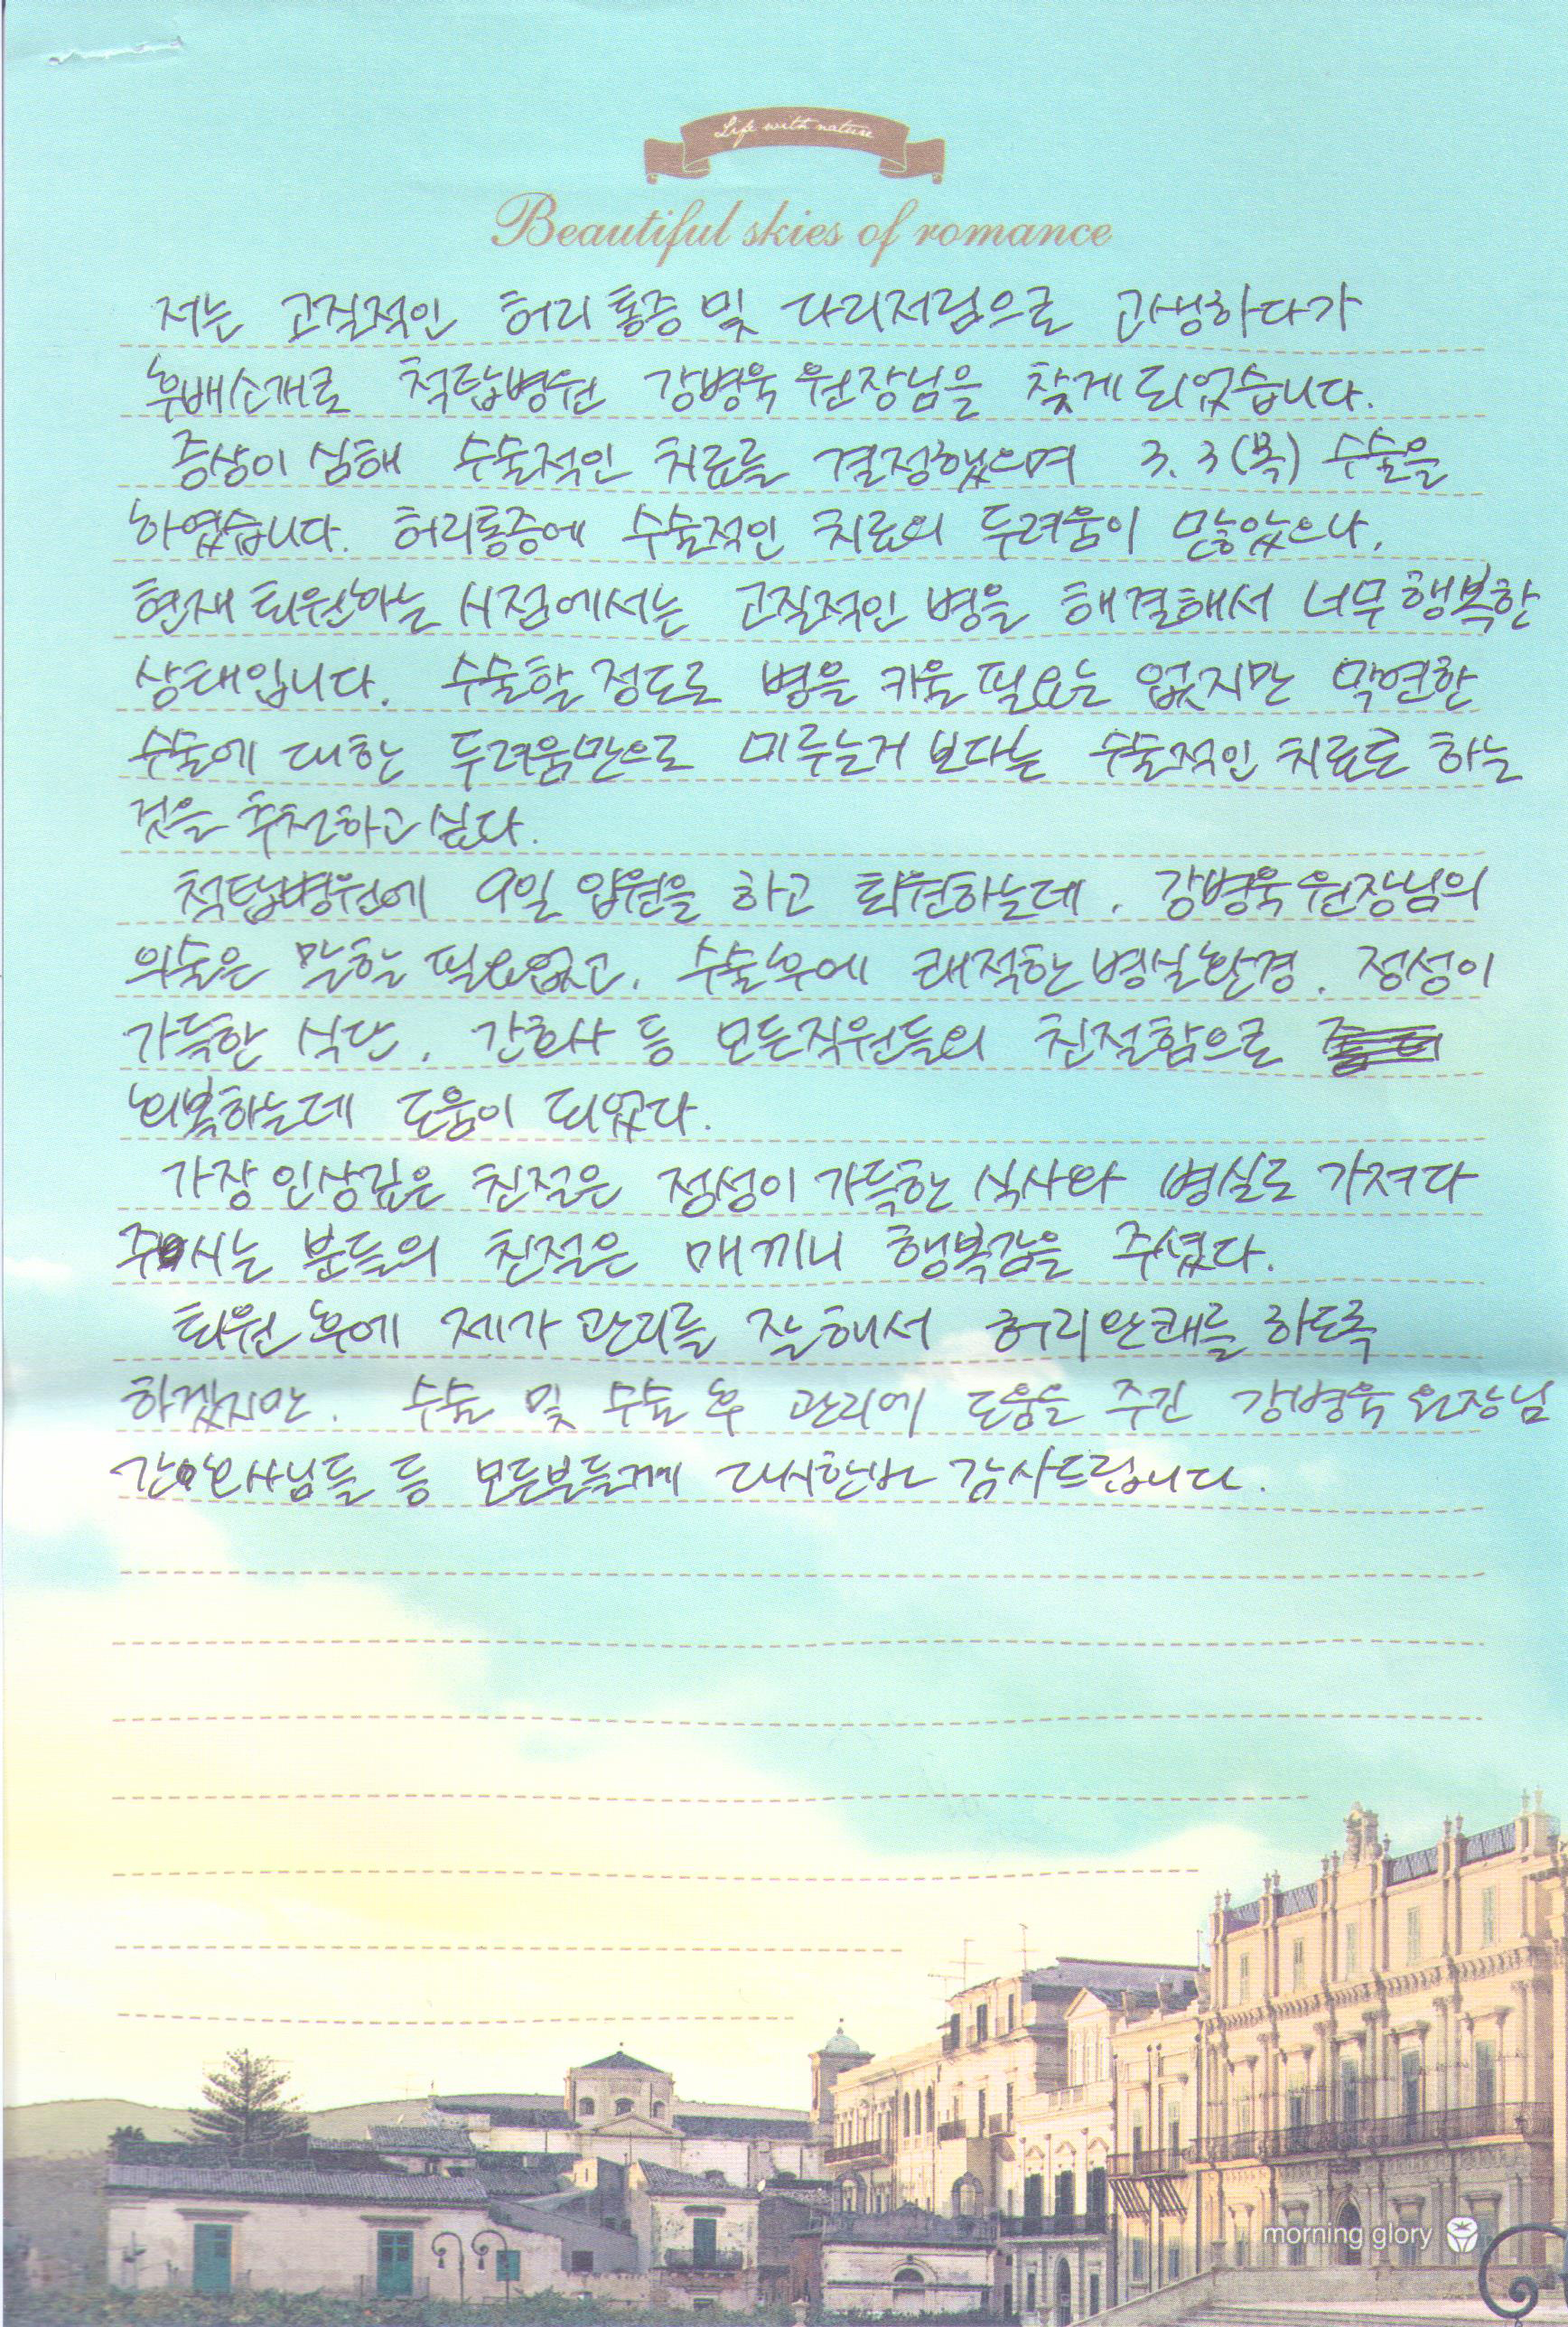 Life with nature
Beautiful skies of romance
저는 고질적인 허리통증 및 다리저림으로 고생하다가
후배소개로 척탑병원 강병욱 원장님을 찾게되었습니다.
증상이 심해 수술적인 치료를 결정했으며 3.3(목) 수술을
하였습니다. 허리통증에 수술적인 치료의 두려움이 많았으나,
현재 퇴원하는 시점에서는 고질적인 병을 해결해서 너무 행복한
상태입니다. 수술할 정도로 병을 키울 필요는 없지만 막연한
수술에 대한 두려움만으로 미루는거 보다는 수술적인 치료를 하는
것을 추천하고 싶다.
척탑병원에 9일 입원을 하고 퇴원하는데, 강병욱 원장님의
의술은 말할 필요없고, 수술후에 쾌적한 병실환경, 정성이
가득한 식단, 간호사 등 모든직원들의 친절함으로
회복하는데 도움이 되었다.
가장 인상깊은 친절은 정성이 가득한 식사와 병실로 가져다
주시는 분들의 친절은 매끼니 행복감을 주셨다.
퇴원 후에 제가 관리를 잘해서 허리완쾌를 하도록
하겠지만, 수술 및 수술 후 관리에 도움을 주진 강병욱 원장님
간호사님들 등 모든분들께 다시한번 감사드립니다.
morning glory